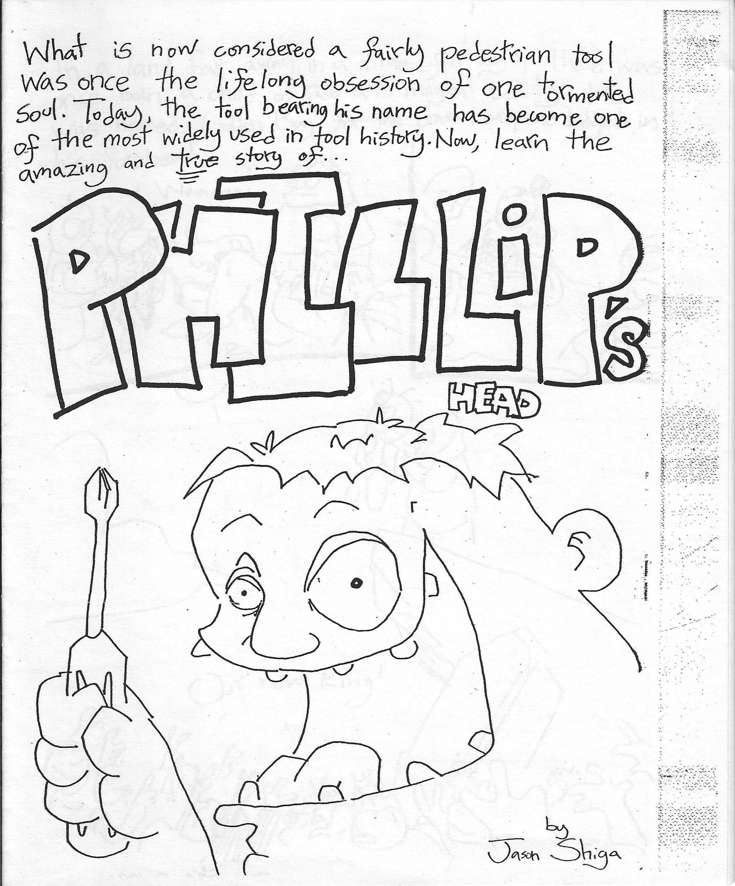 What is now considered a fairly pedestrian tool
was once the lifelong obsession of one tormented
soul. Today, the tool bearing his name has become one
of the most widely used in tool history. Now, learn the
amazing and true story of...
PHILLIP's
HEAD
by
Jason Shiga